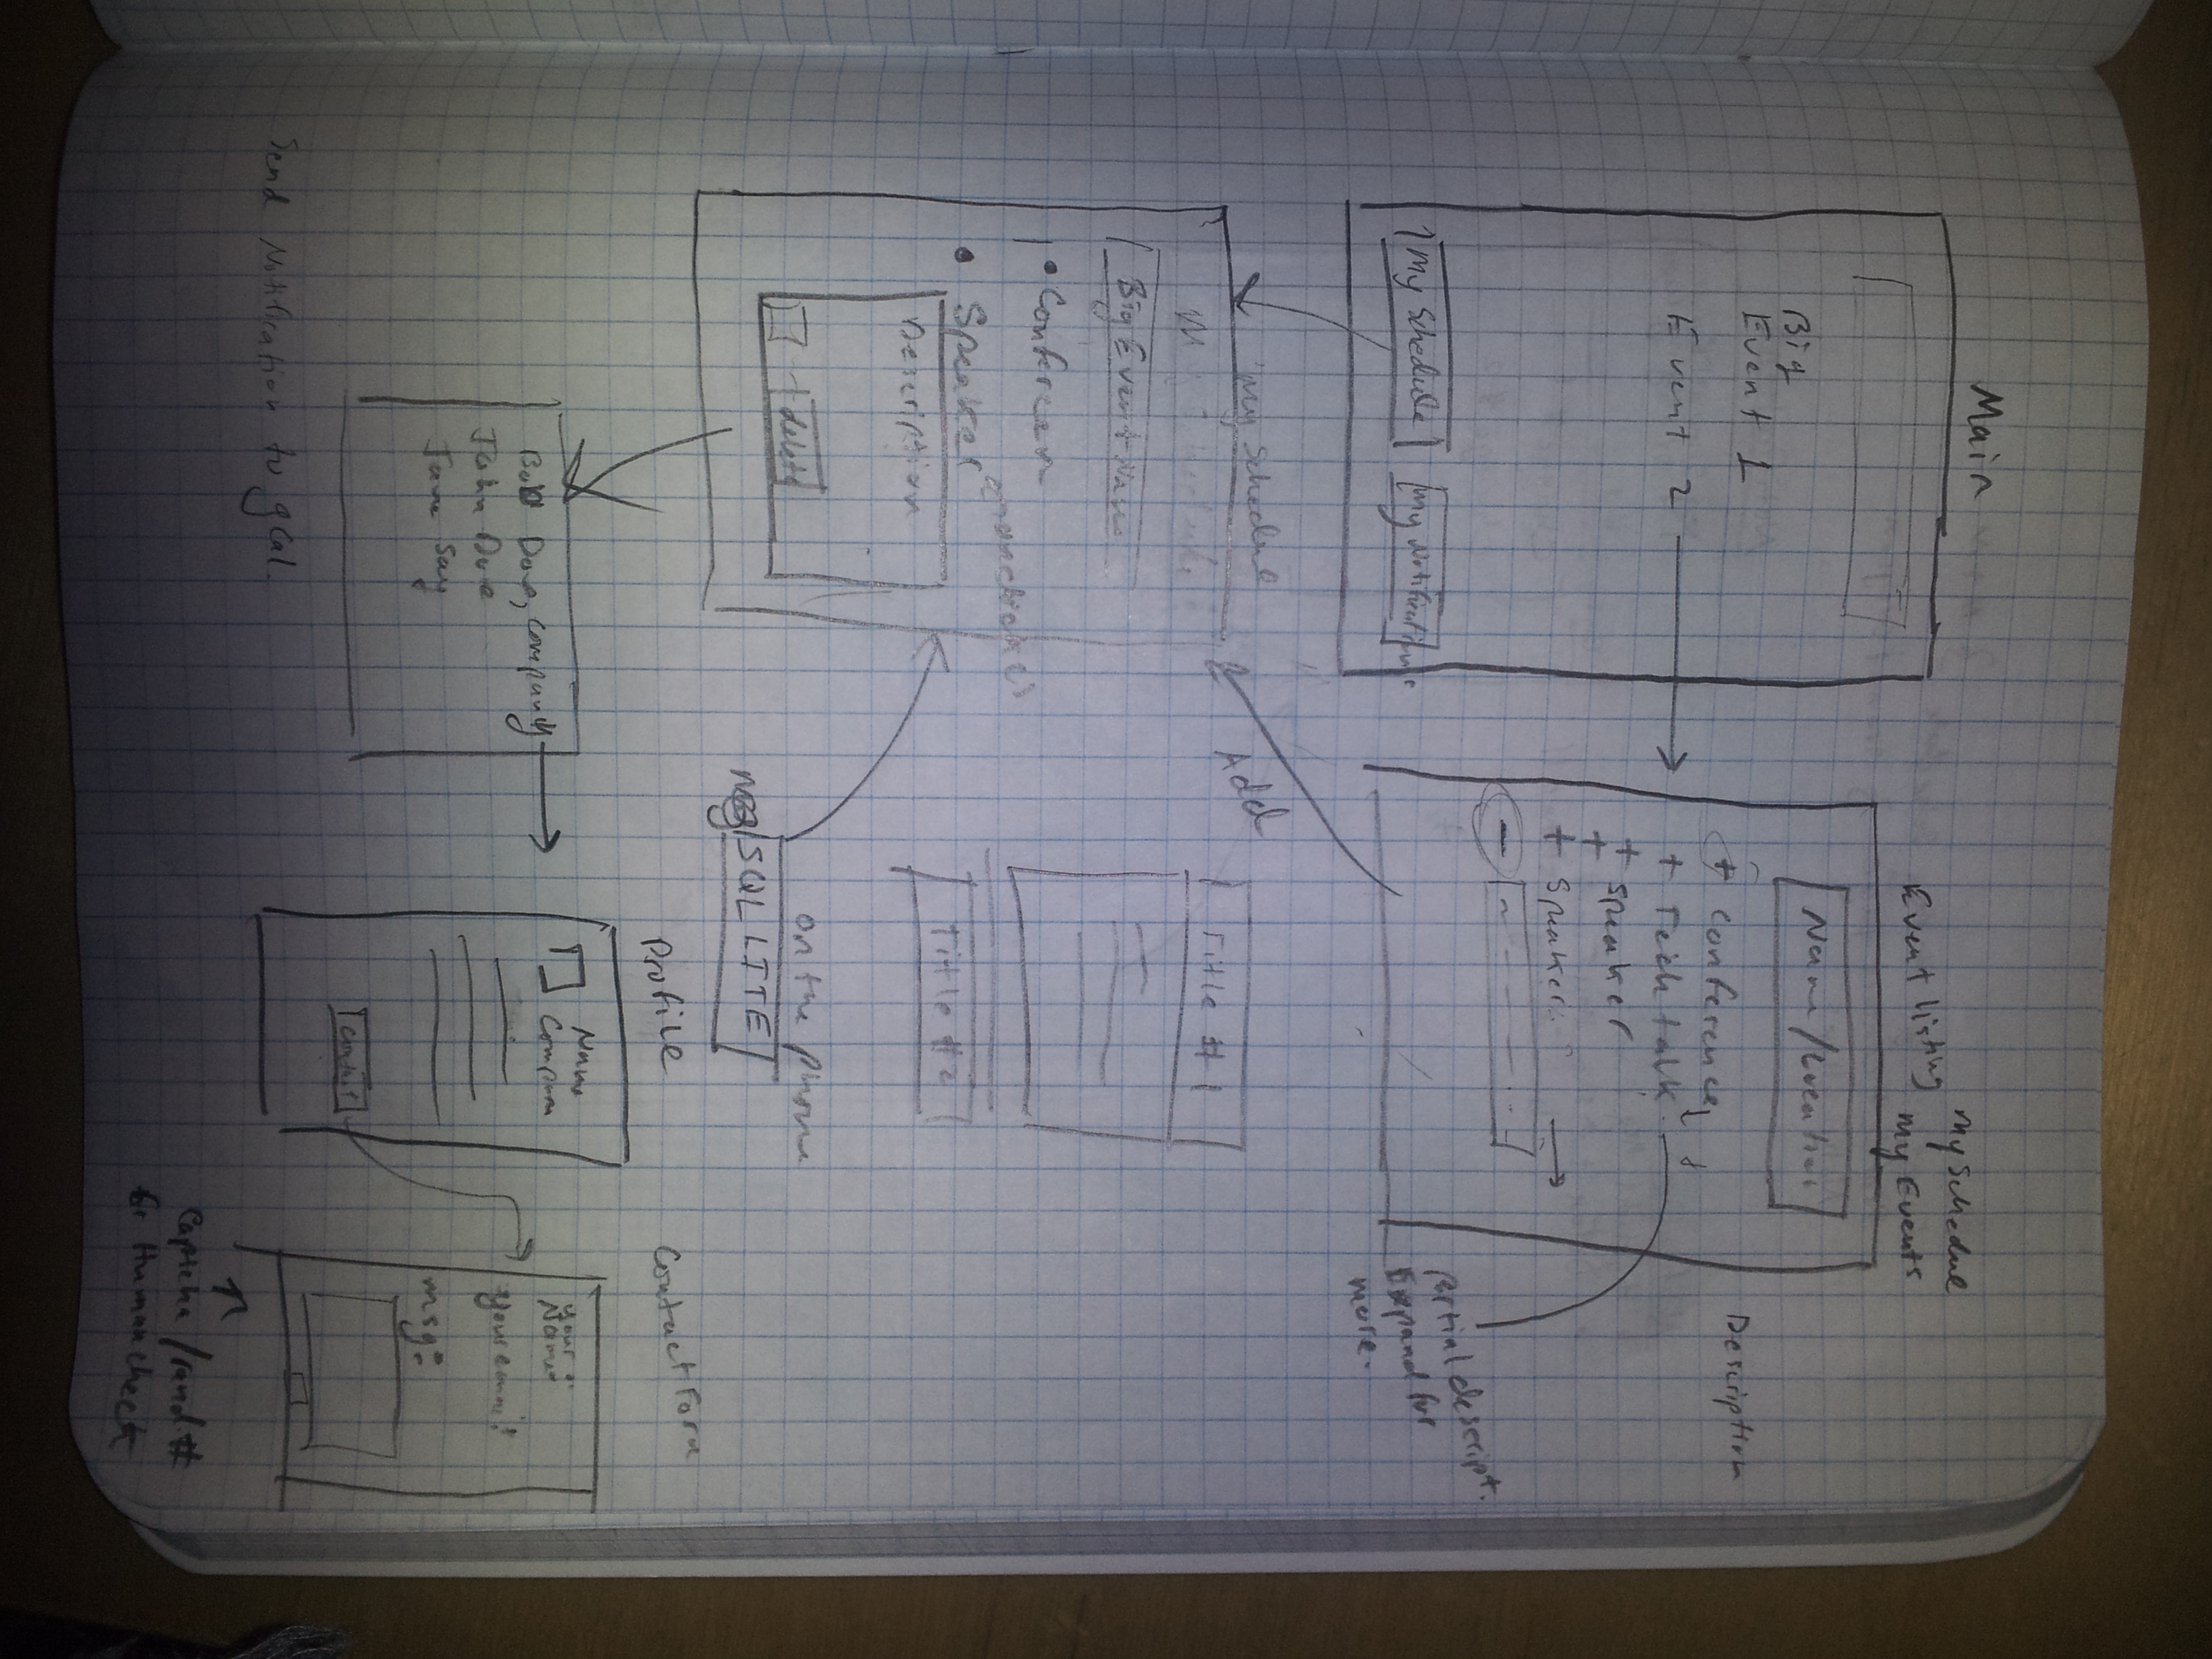 Main
Big
Event 1
Event 2
My Schedule
My Notifications
My Schedule
Event listing
My Events
Name/Location
+ Conference
+ Tech talk
+ Speaker
+
+ Speaker
-
Description
Partial descript.
Expand for
more.
My Schedule
Add
Big Event Name
• Conferen
• Speaker
Description
delete
Title #1
Title #2
on the phone
SQL LITE
Doe, company
John Doe
Jane Say
Profile
Name
Company
Contact
Contact Form
Your
Name:
Your email
msg:
Captcha/rand #
for Human check
Send Notification to gCal.